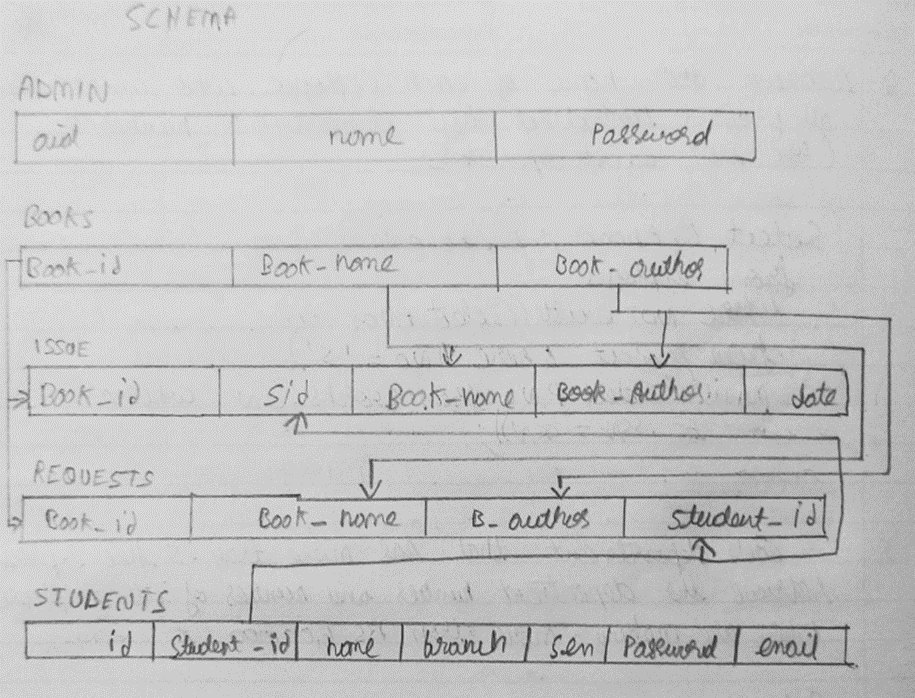 SCHEMA
ADMIN
aid name Password
BOOKS
Book_id Book_name Book_author
ISSUE
Book_id Sid Book_name Book_Author date
REQUESTS
Book_id Book_name B_author Student_id
STUDENTS
id Student_id name branch sem Password email